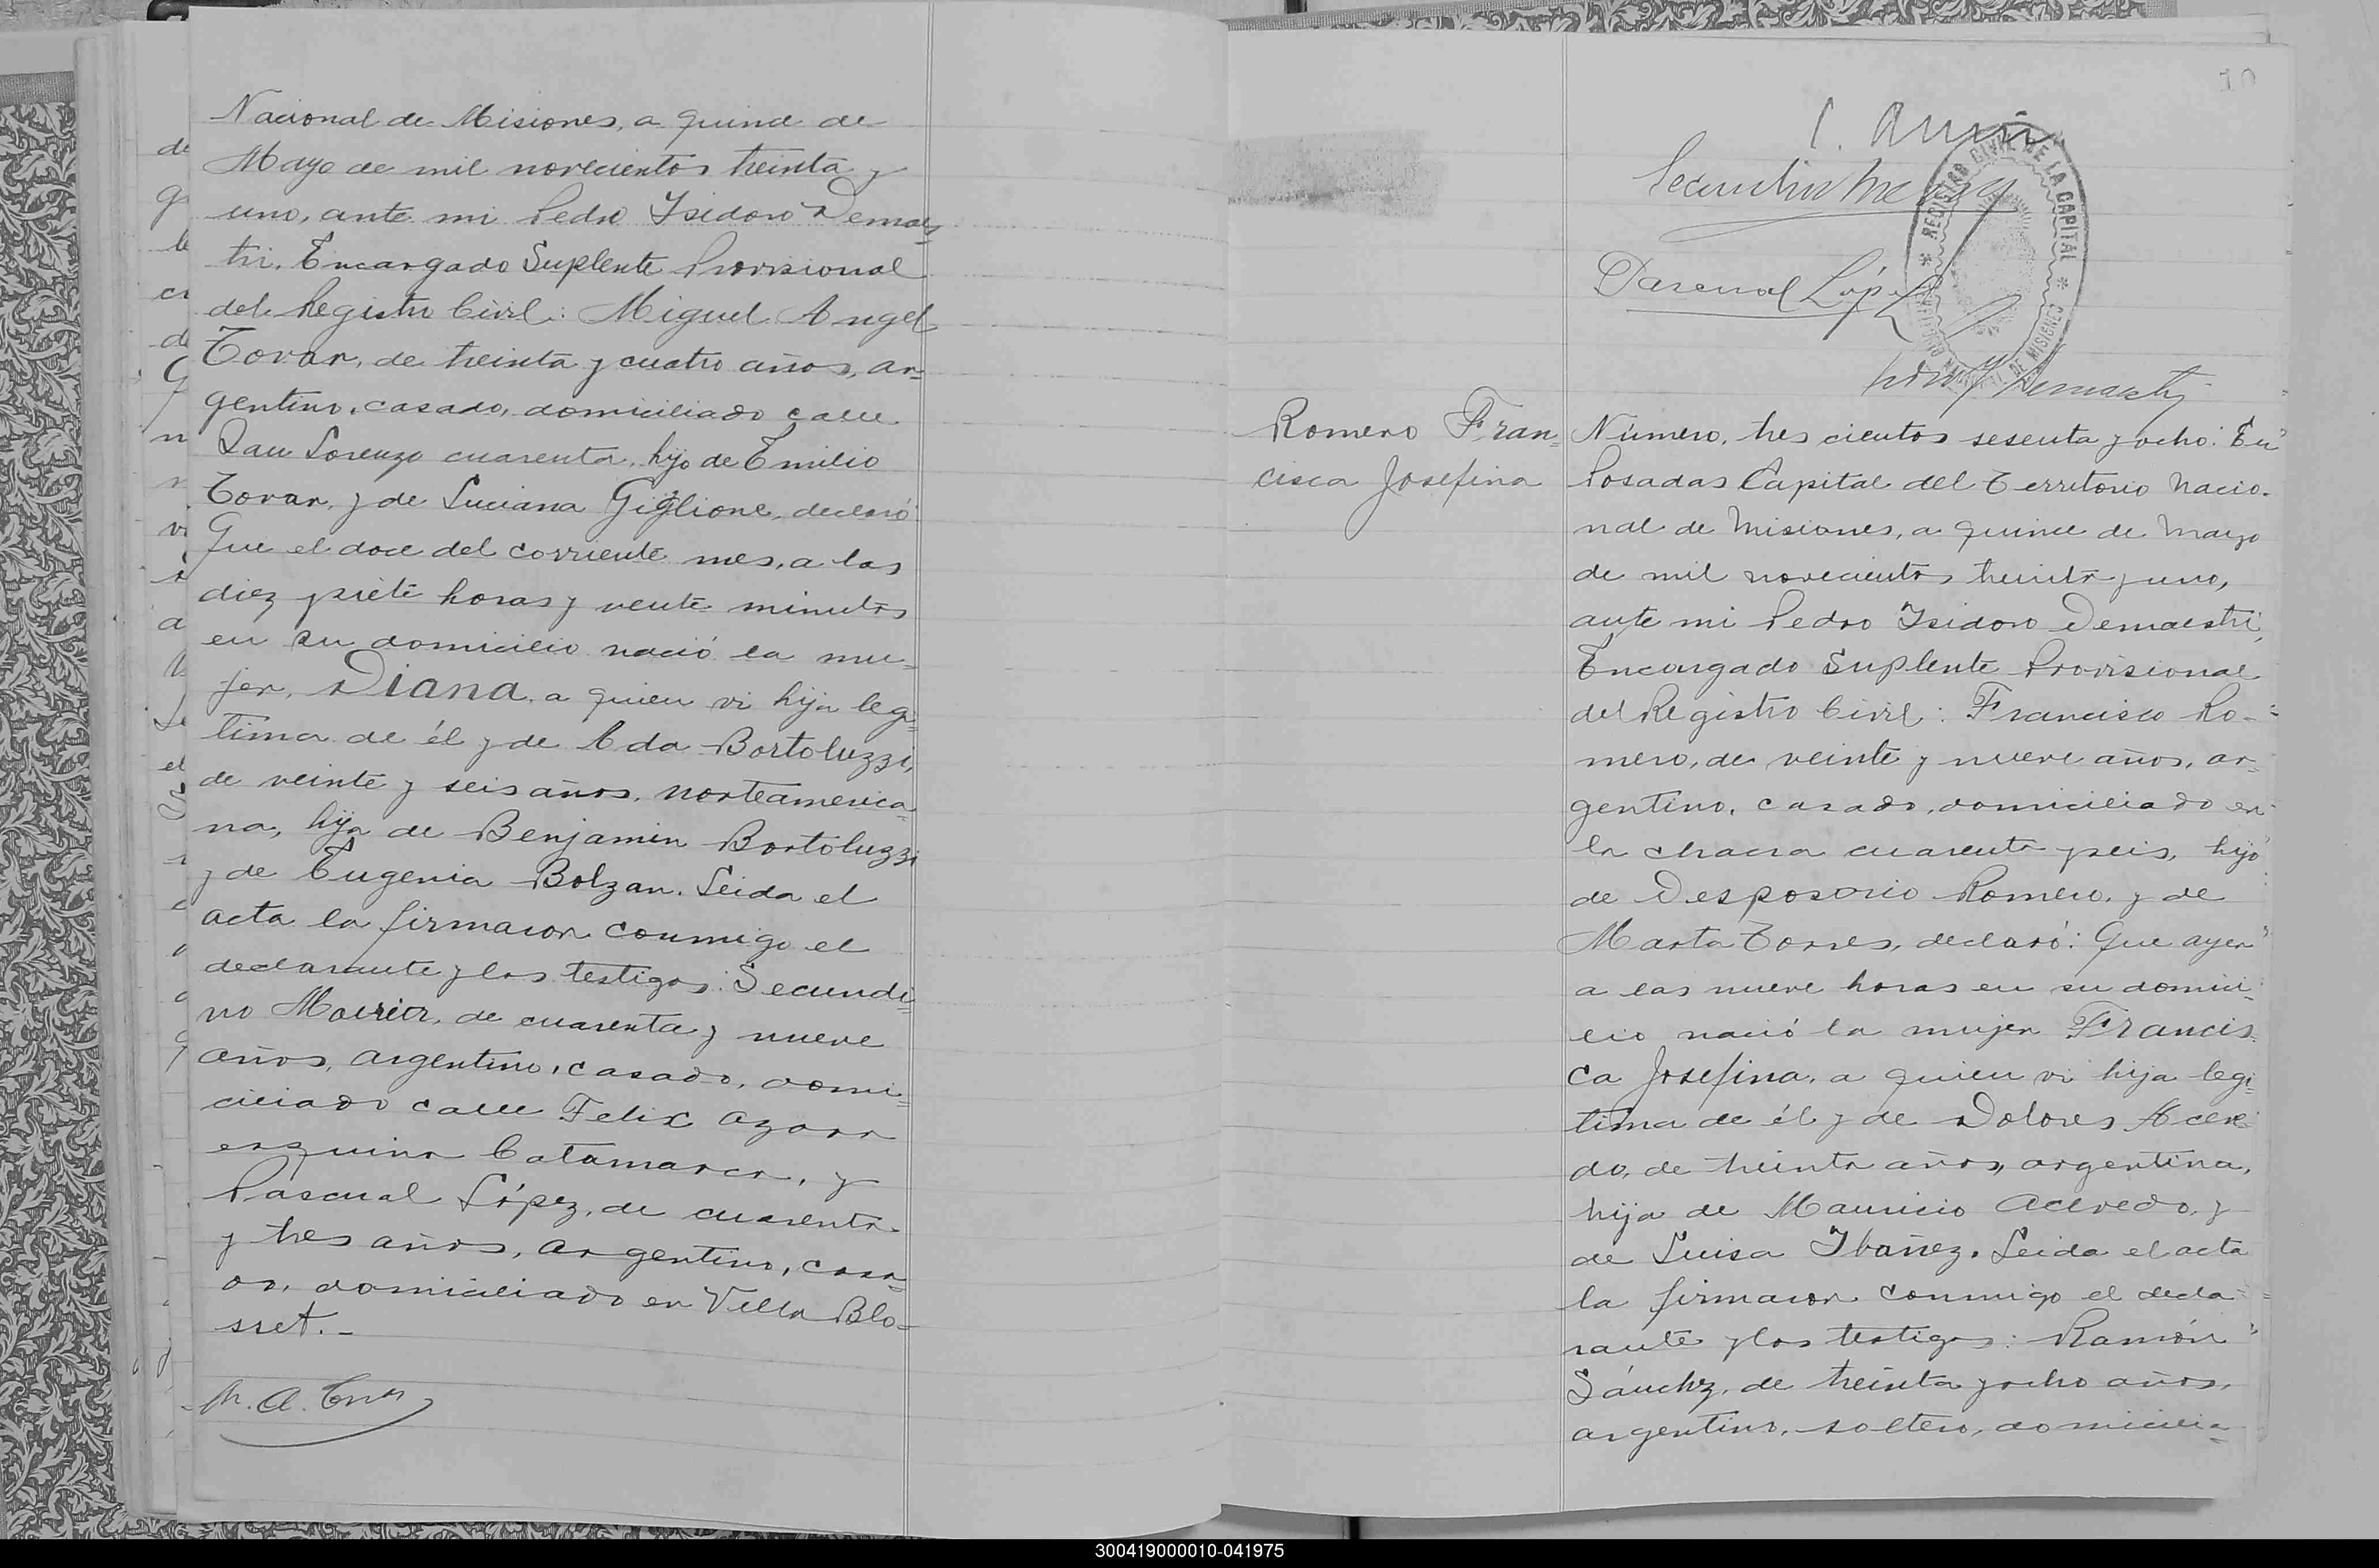 Nacional de Misiones, a quince de
Mayo de mil novecientos treinta y
uno, ante mi Pedro Isidoro Demaes=
tri, Encargado Suplente Provisional
del Registro Civil: Miguel Angel
Tovar, de treinta y cuatro años, ar=
gentino, casado, domiciliado calle
San Lorenzo cuarenta, hijo de Emilio
Tovar, y de Luciana Giglione, declaró
Que el doce del corriente mes, a las
diez y siete horas y veinte minutos
en su domicilio nació la mu=
jer, Diana, a quien vi hija legi=
tima de él y de Ada Bortoluzzi,
de veinte y seis años, norteamerica=
na, hija de Benjamin Bortoluzzi
y de Eugenia Bolzan. Leida el
acta la firmaron conmigo el
declarante y los testigos: Secundi=
no de cuarenta y nueve
años, argentino, casado, domi=
ciliado calle Felix Azara
esquina Catamarca, y
Pascual López, de cuarenta
y tres años, argentino, casa=
do, domiciliado en Villa Blo=
sset.-
M. A. Tovar
10
Pascual López
REGISTRO CIVIL DE LA CAPITAL
DE MISIONES
Romero Fran=
cisca Josefina
Número, tres cientos sesenta y ocho: En
Posadas Capital del Territorio Nacio-
nal de Misiones, a quince de Mayo
de mil novecientos treinta y uno,
ante mi Pedro Isidoro Demaestri,
Encargado Suplente Provisional
del Registro Civil: Francisco Ro-
mero, de veinte y nueve años, ar=
gentino, casado, domiciliado en
la chacra cuarenta y seis, hijo
de Desposorio Romero, y de
Marta Torres, declaró: Que ayer
a las nueve horas en su domici=
lio nació la mujer Francis=
ca Josefina, a quien vi hija legi=
tima de él y de Dolores Aceve=
do, de treinta años, argentina,
hija de Mauricio Acevedo, y
de Luisa Ibañez. Leida el acta
la firmaron conmigo el decla=
rante y los testigos: Ramón
Sánchez, de treinta y ocho años,
argentino, soltero, domicilia=
300419000010-041975